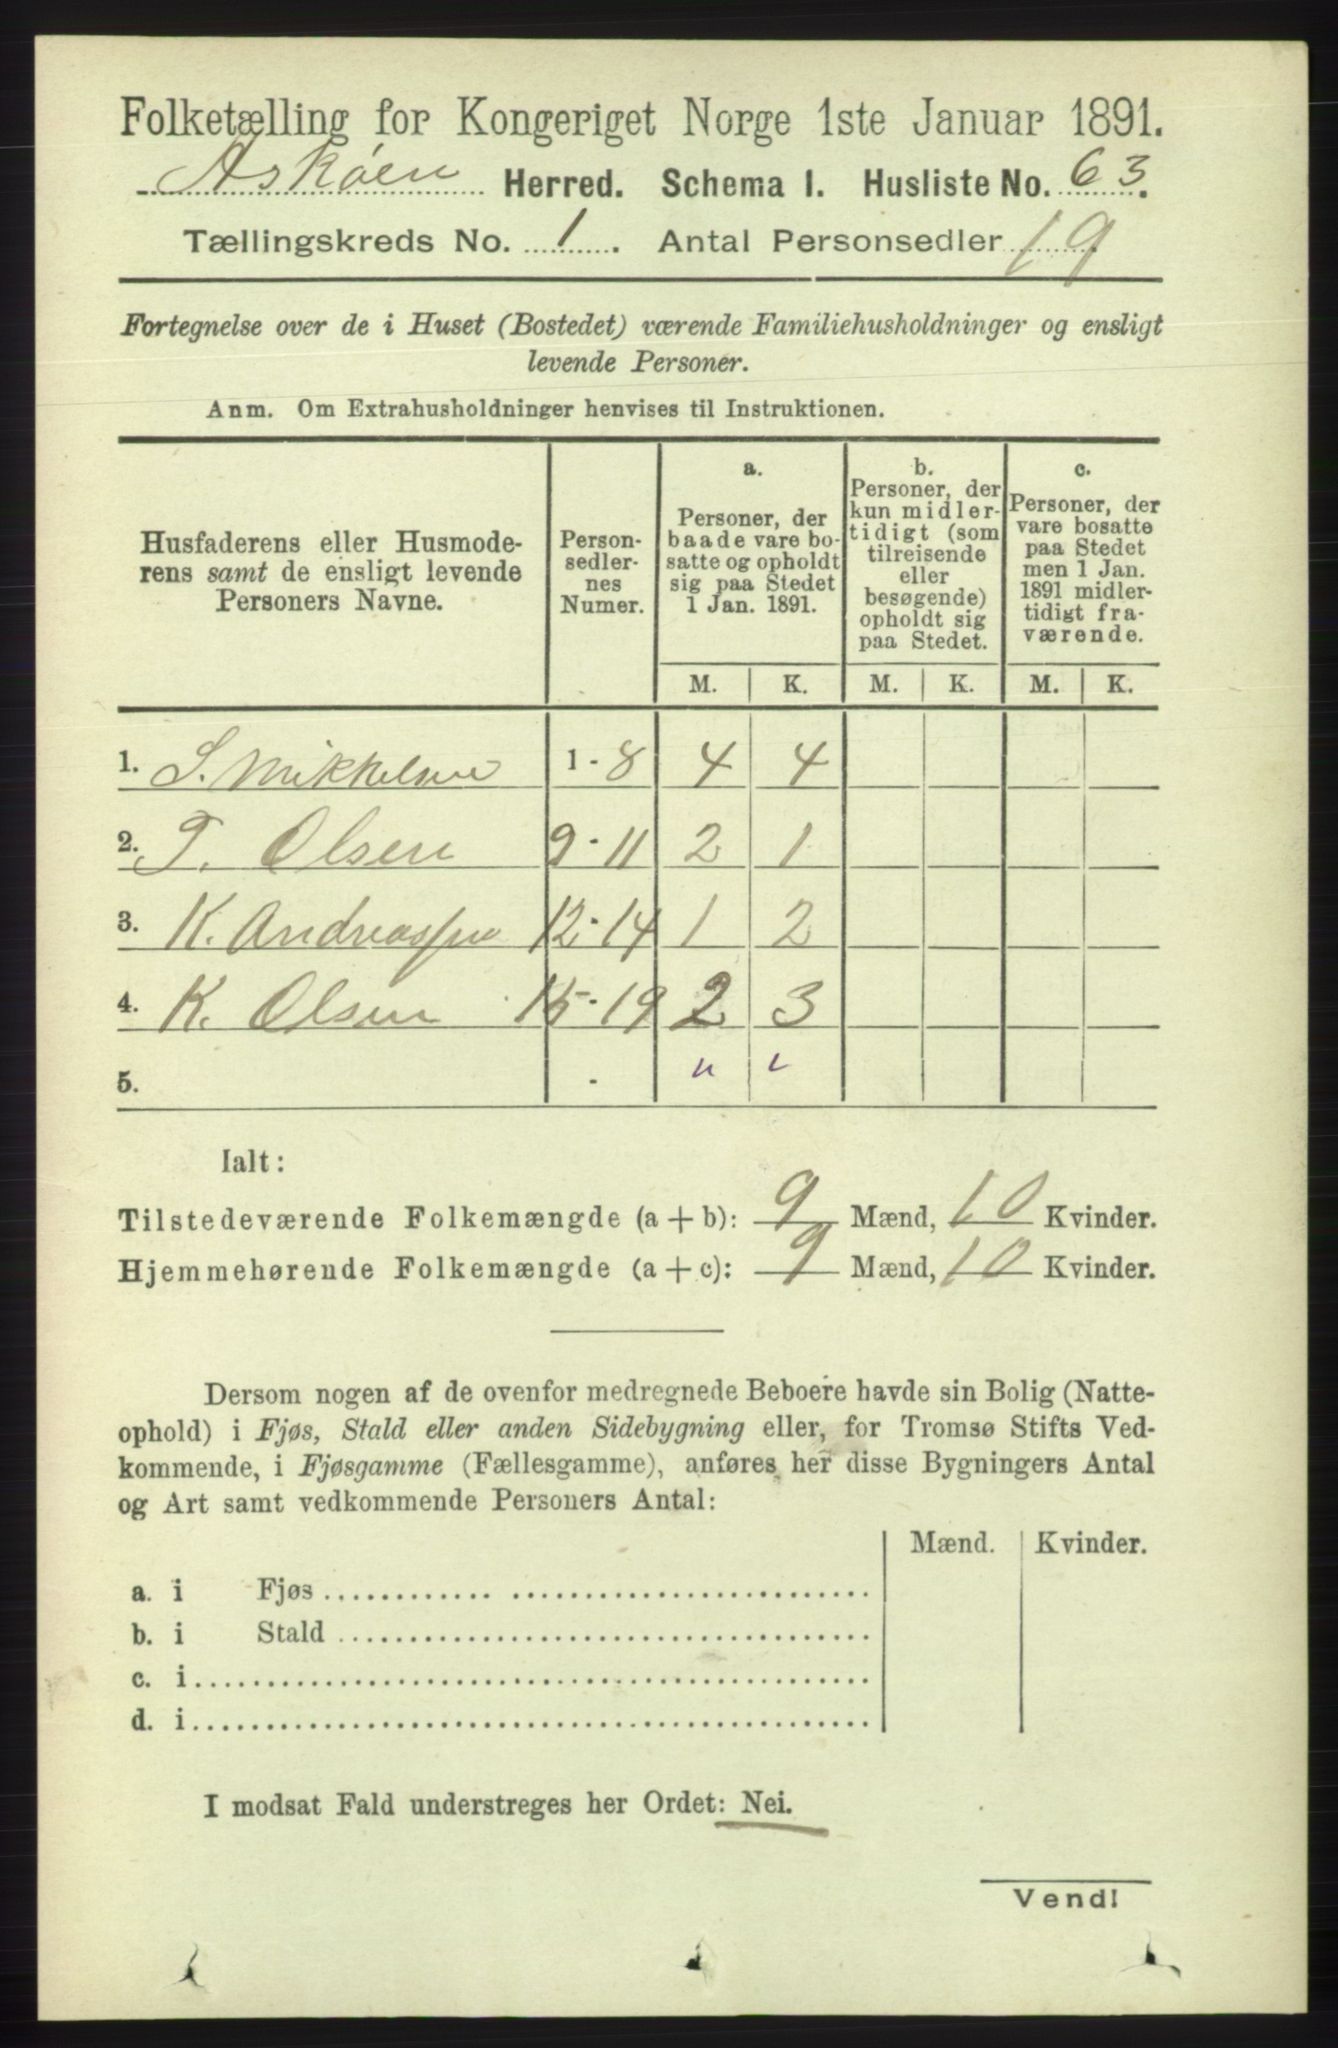 Folketælling for Kongeriget Norge 1ste Januar 1891.
Askøen Herred. Schema 1. Husliste No. 63.
Tællingskreds No. 1. Antal Personsedler 19
Fortegnelse over de i Huset (Bostedet) værende Familiehusholdninger og ensligt
levende Personer.
Anm. Om Extrahusholdninger henvises til Instruktionen.
Husfaderens eller Husmode-
rens samt de ensligt levende
Personers Navne.
Person-
sedler-
nes
Numer.
a.
Personer, der
baade vare bo-
satte og opholdt
sig paa Stedet
1 Jan. 1891.
b.
Personer, der
kun midler-
tidigt (som
tilreisende
eller
besøgende)
opholdt sig
paa Stedet.
c.
Personer, der
vare bosatte
paa Stedet
men 1 Jan.
1891 midler-
tidigt fra-
værende.
M. K. M. K. M. K.
1. S. Mikkelsen 1-8 4 4
2. T. Olsen 9-11 2 1
3. K. Andreassen 12-14 1 2
4. K. Olsen 15-19 2 3
5. -
Ialt:
Tilstedeværende Folkemængde (a + b): 9 Mænd, 10 Kvinder.
Hjemmehørende Folkemængde (a + c): 9 Mænd, 10 Kvinder.
Dersom nogen af de ovenfor medregnede Beboere havde sin Bolig (Natte-
ophold) i Fjøs, Stald eller anden Sidebygning eller, for Tromsø Stifts Ved-
kommende, i Fjøsgamme (Fællesgamme), anføres her disse Bygningers Antal
og Art samt vedkommende Personers Antal:
Mænd. Kvinder.
a. i Fjøs
b. i Stald
c. i
d. i
I modsat Fald understreges her Ordet: Nei.
Vend!